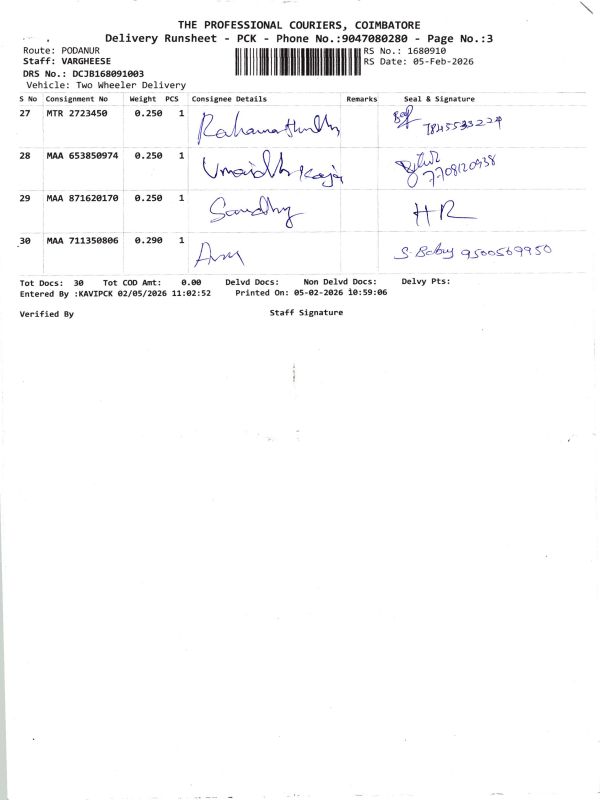 THE PROFESSIONAL COURIERS, COIMBATORE
Delivery Runsheet - PCK - Phone No.:9047080280 - Page No.:3
Route: PODANUR RS No.: 1680910
Staff: VARGHEESE RS Date: 05-Feb-2026
DRS No.: DCJB168091003
Vehicle: Two Wheeler Delivery
S No Consignment No Weight PCS Consignee Details Remarks Seal & Signature
27 MTR 2723450 0.250 1
28 MAA 653850974 0.250 1 7708120938
29 MAA 871620170 0.250 1 Sandhy HR
30 MAA 711350806 0.290 1 S. Babu 9500569950
Tot Docs: 30 Tot COD Amt: 0.00 Delvd Docs: Non Delvd Docs: Delvy Pts:
Entered By :KAVIPCK 02/05/2026 11:02:52 Printed On: 05-02-2026 10:59:06
Verified By Staff Signature